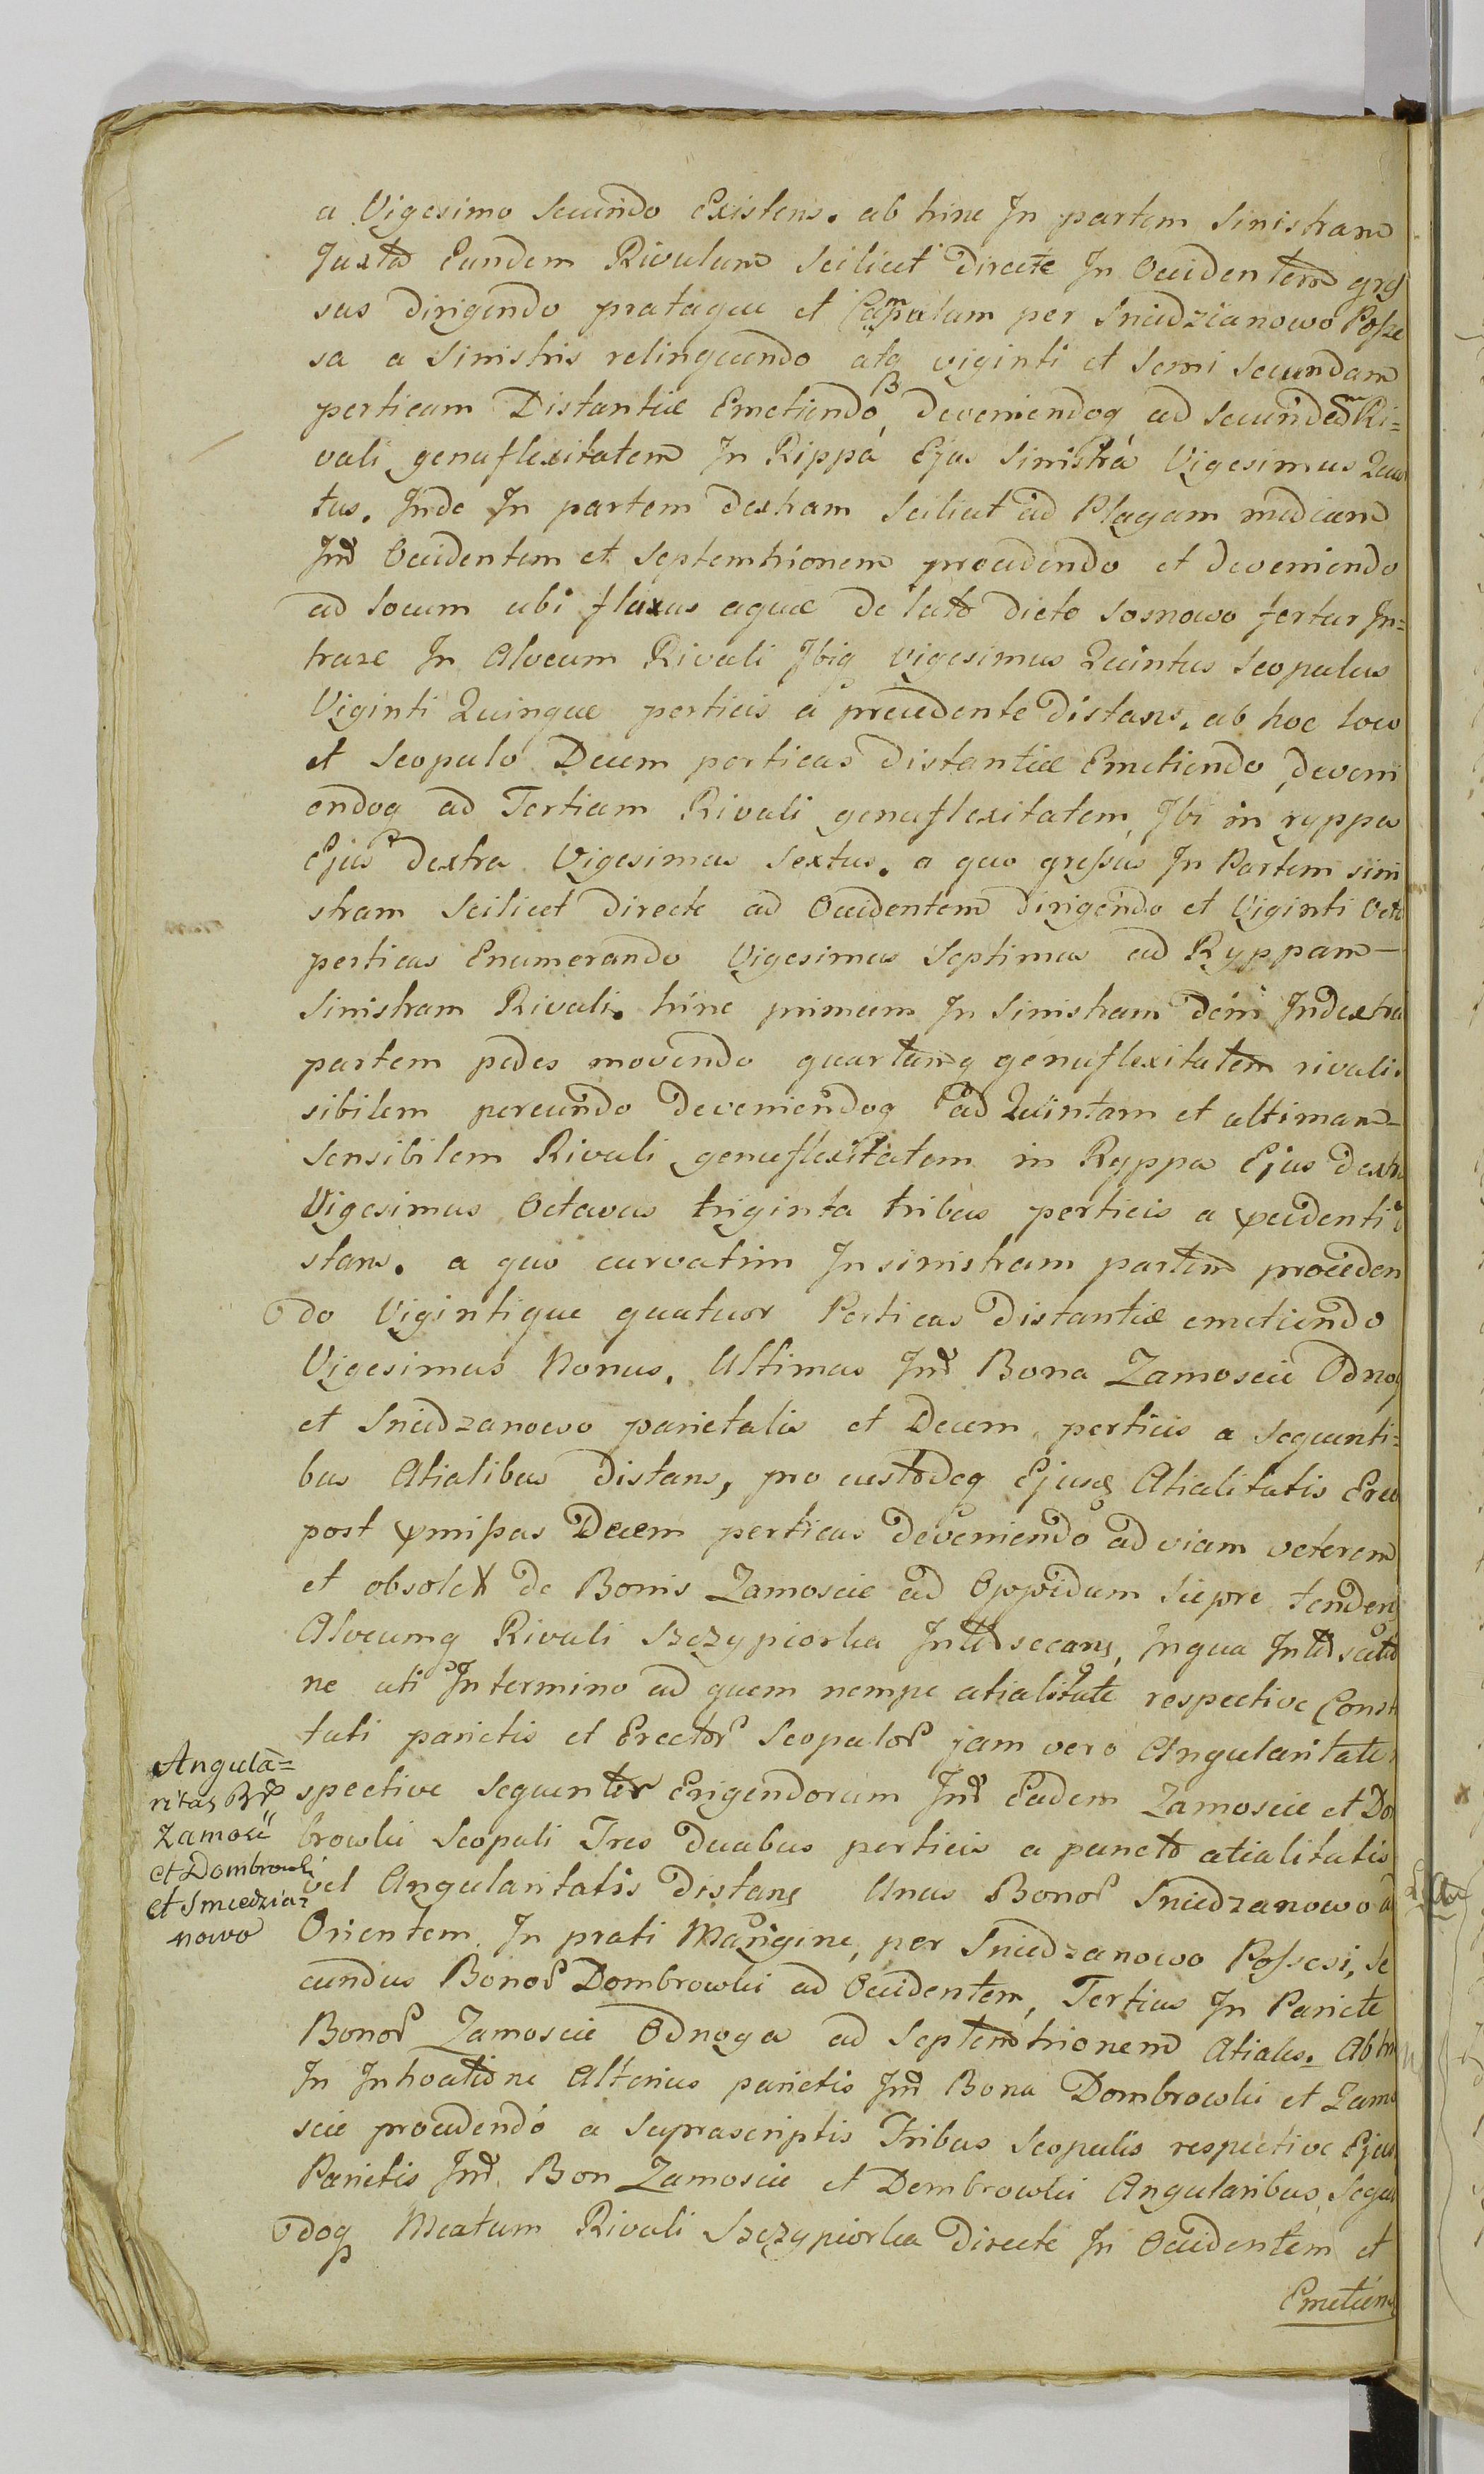 a Vigesimo Secundo Existens. ab hinc In partem Sinistram
Juxta Eundem Rivulum Scilicet directe In Occidentem gres
sus dirigendo prataque et Campulum per Sniedzianowo Posse
sa a Sinistris relinquendo atq viginti et Semi Secundam
perticam Distantiæ Emetiendo, deveniendoq ad Secundam Ri=
vuli genuflexitatem In Rippá Ejus Sinistrá Vigesimus Quar
tus. Inde In partem dextram Scilicet ad Plagam mediam
Int Occidentem et Septemtrionem procedendo et deveniendo
ad locum ubi fluxus aquæ de luto dicto Sosnowo fertur In=
trare In Alveum Rivuli Ibiq vigesimus Quintus Scopulus
Viginti Quinque perticis a precedente distans. ab hoc loco
et Scopulo Decem perticas distantiæ Emetiendo, deveni
endoq ad Tertiam Rivuli genuflexitatem, Ibi in ryppa
Ejus dextra Vigesimus Sextus. a quo gressus In Partem sini
stram Scilicet directe ad Occidentem dirigendo et Viginti Octo
perticas Enumerando Vigesimus Septimus ad Ryppam
Sinistram Rivuli. hinc primum In Sinistram dein Indextra
partem pedes movendo quartamq genuflexitatem rivuli
sibilem pereundo deveniendoq ad Quintam et ultimam
Sensibilem Rivuli genuflexitatem in Ryppa Ejus dextr
Vigesimus Octavus triginta tribus perticis a pcedenti di
stans. a quo curvatim In sinistram partem proceden
do Vigintique quatuor Perticas Distantiæ emetiendo
Vigesimus Nonus. Ultimus Int Bona Zamoscie Odnog
et Sniedzanowo parietalis et Decem perticis a Sequenti=
bus Atialibus Distans, pro custodeq Ejusd Atialitatis Erec
post pmissas Decem perticas deveniendo ad viam veterem
et obsolet de Bonis Zamoscie ad Oppidum Siepre tenden
Alveumq Rivuli Szczypiorka Intersecans, Inqua Intersectio
ne uti In termino ad quem nempe atialitate respective Const
tuti parietis et Erector Scopulor jam vero Angularitate
spective Sequenter Erigendorum Int Eadem Zamoscie et Do
browki Scopuli Tres duabus perticis a puncto atialitatis
vel Angularitatis Distans Unus Bonor Sniedzanowo a
Orientem In prati Margine, per Sniedzanowo Possesi, Se
cundus Bonor Dombrowki ad Occidentem, Tertius In Pariete
Bonor Zamoscie Odnoga ad Septemtrionem Atiales. Ab hi
In Inhoatione Alterius parietis Int Bona Dombrowki et Zamo
scie procedendo a Suprascriptis Tribus Scopulis respective Ejus
Parietis Int. Bon Zamoscie et Dombrowki Angularibus, Sequ
doq Meatum Rivuli Szczypiorka Directe In Occidentem et
Emetien
Angula=
ritas Br
Zamosc
et Dombrowki
et Smiedzia=
nowo